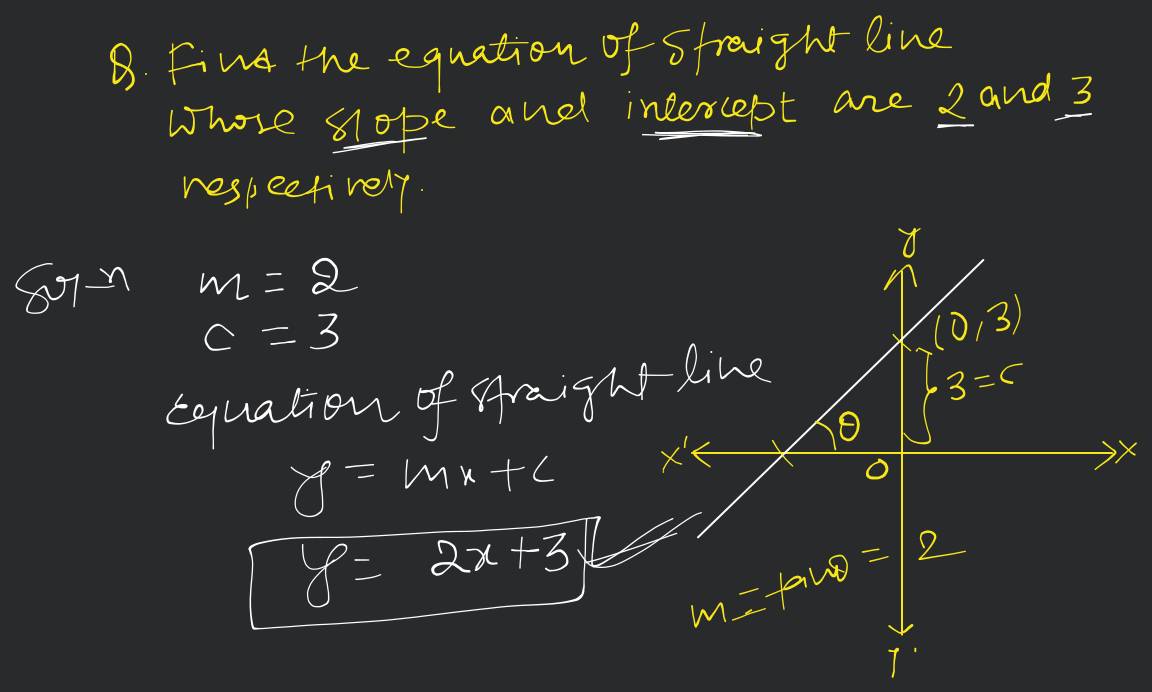 Q. Find the equation of straight line
whose slope and intercept are 2 and 3
respectively.
Sol-n
m = 2
c = 3
Equation of straight line
y = mx + c
y = 2x + 3
y
(0,3)
3 = c
θ
x'
x
O
m = tanθ = 2